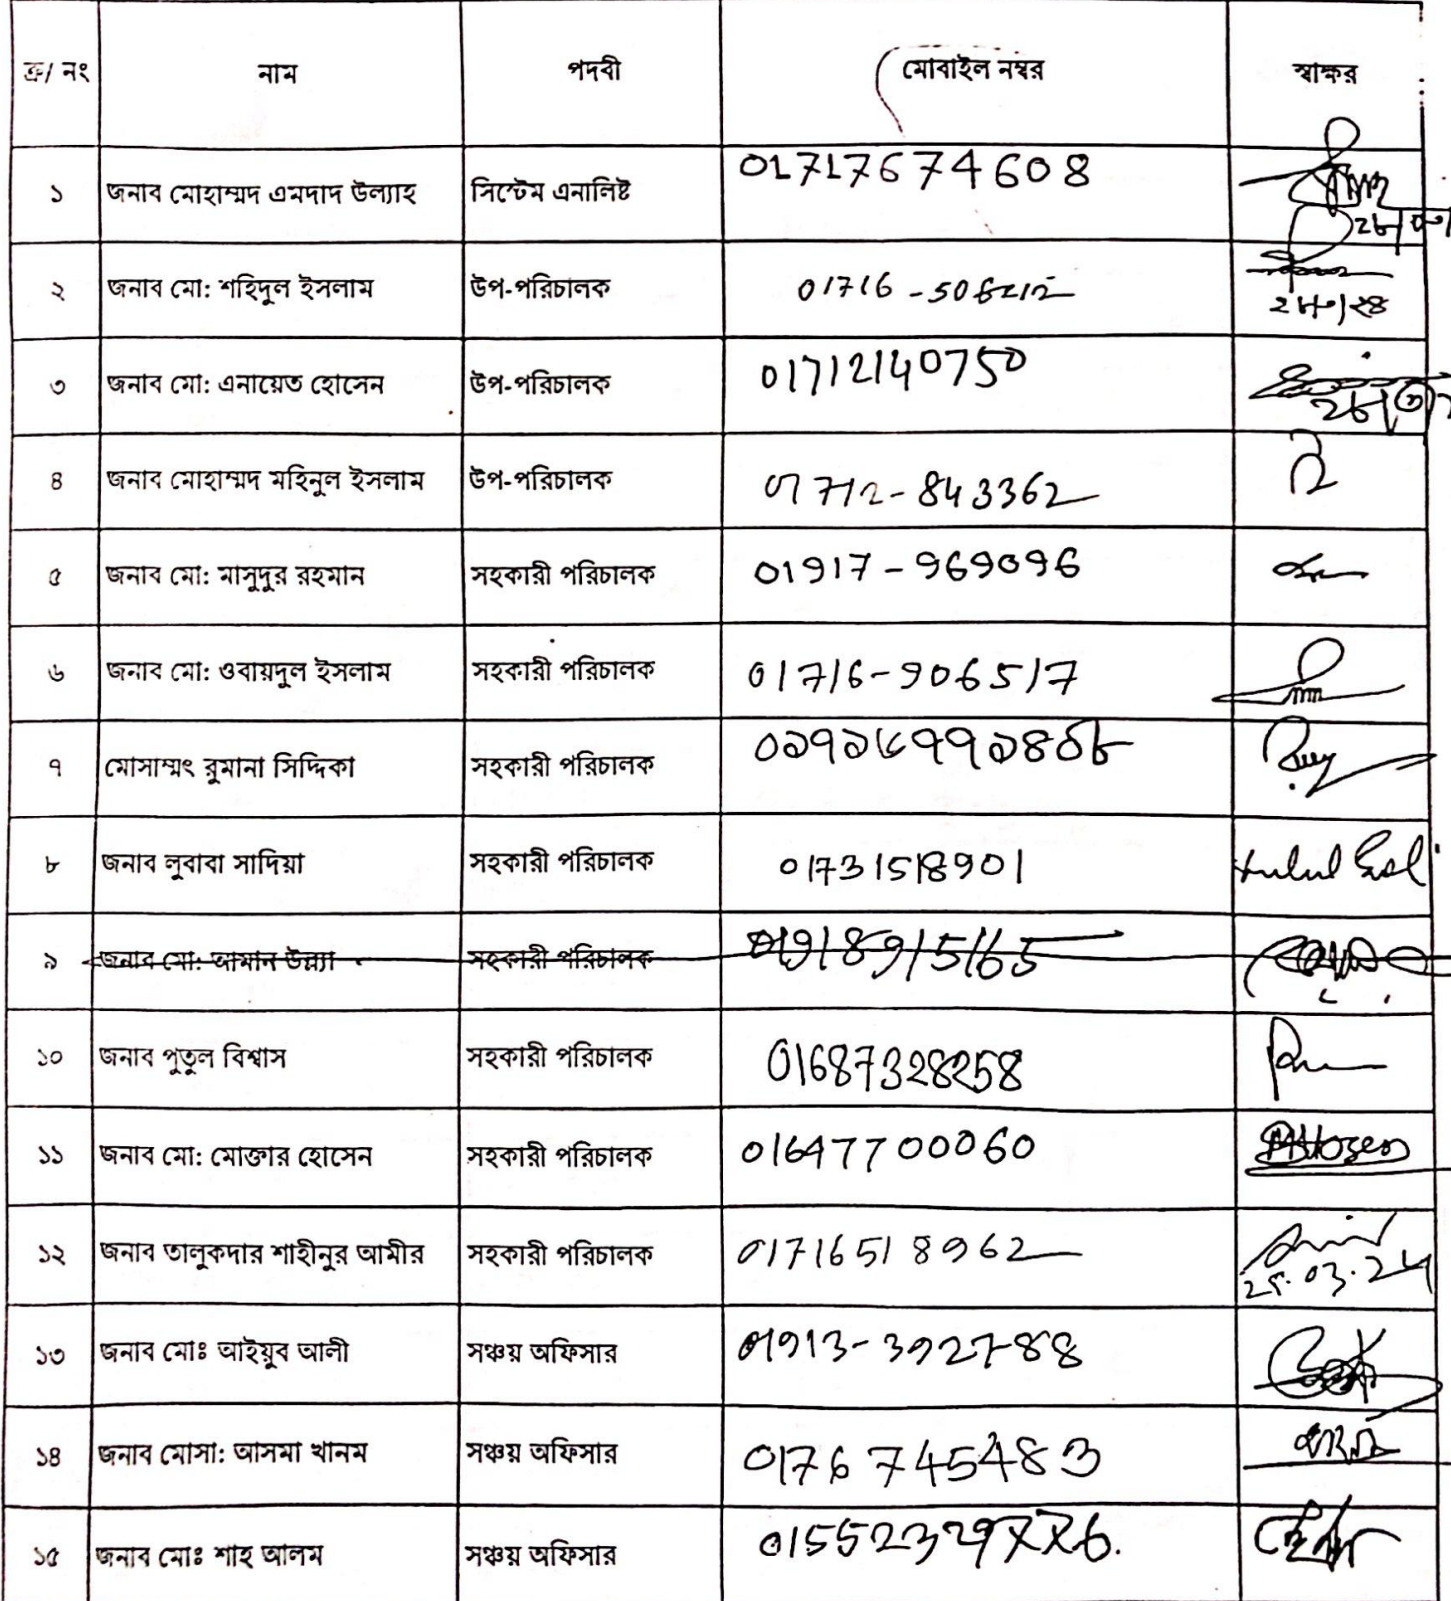 ক্র/ নং নাম পদবী মোবাইল নম্বর স্বাক্ষর
১ জনাব মোহাম্মদ এমদাদ উল্যাহ সিস্টেম এনালিষ্ট 01717674608
২ জনাব মো: শহিদুল ইসলাম উপ-পরিচালক 01716
৩ জনাব মো: এনায়েত হোসেন উপ-পরিচালক 01712140750
৪ জনাব মোহাম্মদ মহিনুল ইসলাম উপ-পরিচালক 01712-843362
৫ জনাব মো: মাসুদুর রহমান সহকারী পরিচালক 01917-969096
৬ জনাব মো: ওবায়দুল ইসলাম সহকারী পরিচালক 01716-906517
৭ মোসাম্মৎ রুমানা সিদ্দিকা সহকারী পরিচালক
৮ জনাব লুবাবা সাদিয়া সহকারী পরিচালক 01731518901
৯ জনাব মো: আমান উল্ল্যা সহকারী পরিচালক 01918915165
১০ জনাব পুতুল বিশ্বাস সহকারী পরিচালক 01687328258
১১ জনাব মো: মোক্তার হোসেন সহকারী পরিচালক 01647700060
১২ জনাব তালুকদার শাহীনুর আমীর সহকারী পরিচালক 01716518962
১৩ জনাব মোঃ আইয়ুব আলী সঞ্চয় অফিসার 01913-392788
১৪ জনাব মোসা: আসমা খানম সঞ্চয় অফিসার 0176745483
১৫ জনাব মোঃ শাহ আলম সঞ্চয় অফিসার